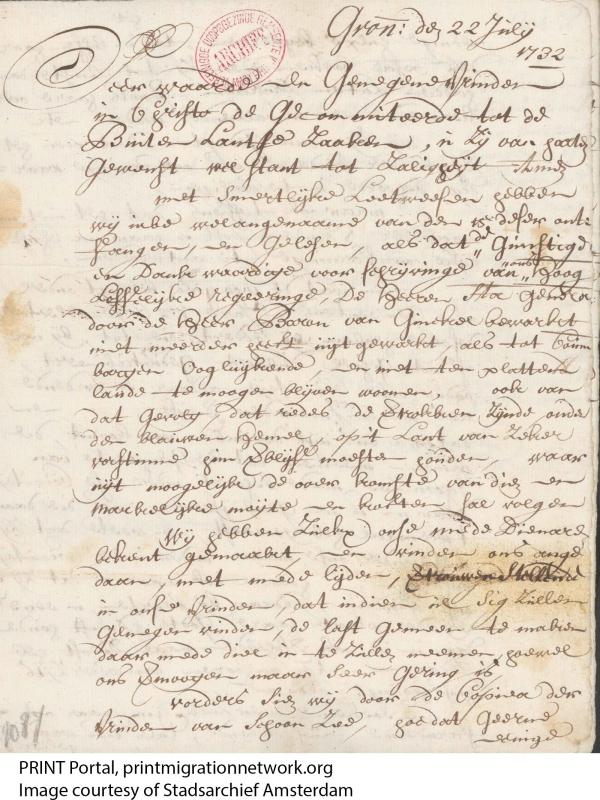 Gron: den 22 July
1732
ARCHIEF
Genegene Vrinden
in Christo de Gecommiteerde tot de
Buiten Lantse Zaaken, u Zy van
Gewenst welstant tot Zaligheyt Amen
met Smertlyke Leetweesen hebben
wy uwe welangenaame van den deser ont
fangen, en Gelesen, als dat de Gunstige
en Dank waardige voor schryvinge van ons Hoog
Loffelyke regeeringe, De Heeren Sta Genera
door de Heer Baron van Ginckel bewerkt
niet meerder heeft uytgewerkt als tot
bargen Oogluykende, en niet ten platten
lande te moogen blyven woonen, ook van
dat Gevolg, dat reedes de Zynde onder
den blauwen Hemel, op't Lant van Zeker
moesten houden, waar
uyt moogelyke de over komste van dien en
Markelyke moyte en kosten sal volgen
Wy hebben Zulkx onse mede Dienare
bekent gemaakt en vinden ons ange
daan, met mede lyden, Vertrouwen Stellende
in onse Vrinden, dat indien u Sig Zullen
Genegen vinden, de last Gemeen te maken
daar mede deel in te Zullen neemen, hoewel
ons Vermoogen maar seer Gering is
vorders Sien wy door de Copiea der
Vrinden van Schoon Zee, hoe dat Geerne
eenige
1087
PRINT Portal, printmigrationnetwork.org
Image courtesy of Stadsarchief Amsterdam